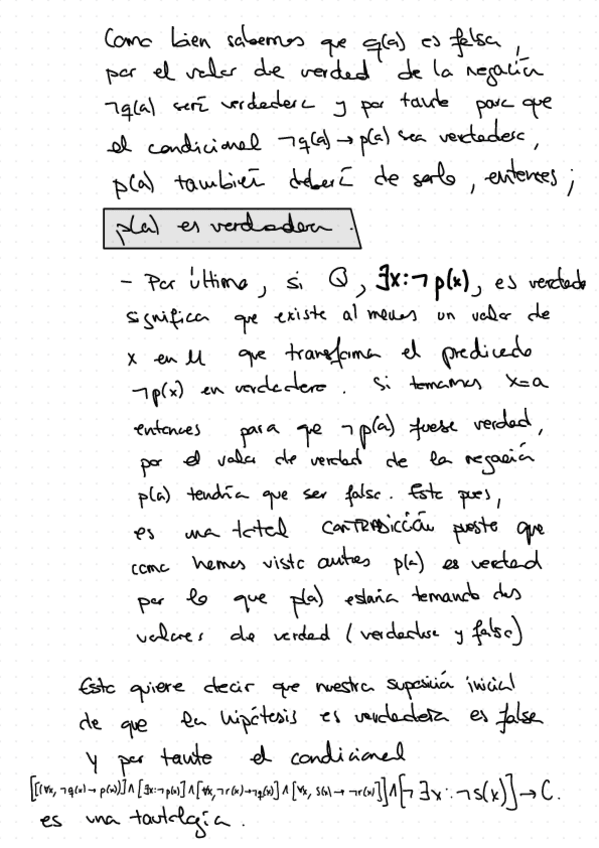 Como bien sabemos que q(a) es falsa,
por el valor de verdad de la negación
¬q(a) será verdadera y por tanto para que
el condicional ¬q(a) → p(a) sea verdadera,
p(a) también deberá de serlo, entonces;
p(a) es verdadera.
- Por último, si Q, ∃x:¬p(x), es verdade
significa que existe al menos un valor de
x en U que transforma el predicado
¬p(x) en verdadero. Si tomamos x=a
entonces para que ¬p(a) fuese verdad,
por el valor de verdad de la negación
p(a) tendría que ser falso. Esto pues,
es una total CONTRADICCIÓN puesto que
como hemos visto antes p(a) es verdad
por lo que p(a) estaría tomando dos
valores de verdad (verdadero y falso)
Esto quiere decir que nuestra suposición inicial
de que la hipótesis es verdadera es falsa
y por tanto el condicional
[[(∀x, ¬q(x) → p(x))] ∧ [∃x:¬p(x)] ∧ [∀x, ¬r(x) → ¬q(x)] ∧ [∀x, s(x) → ¬r(x)]] ∧ [¬∃x:¬s(x)] → C.
es una tautología.